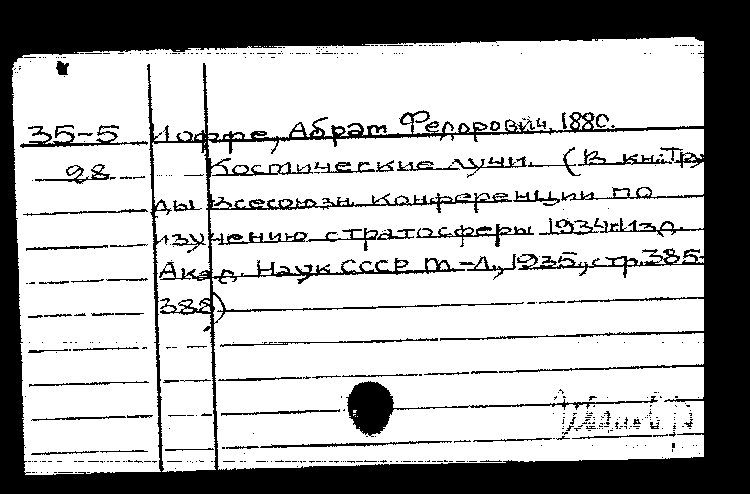 35-5 Иоффе, Абрат Федорович, 1880.
98 Костические лучи. (В кн.: Тру
ды Всесоюзн. конференции по
изучению стратосферы 1934г. Изд.
Акад. Наук СССР М.-Л., 1935, стр. 385-
388)